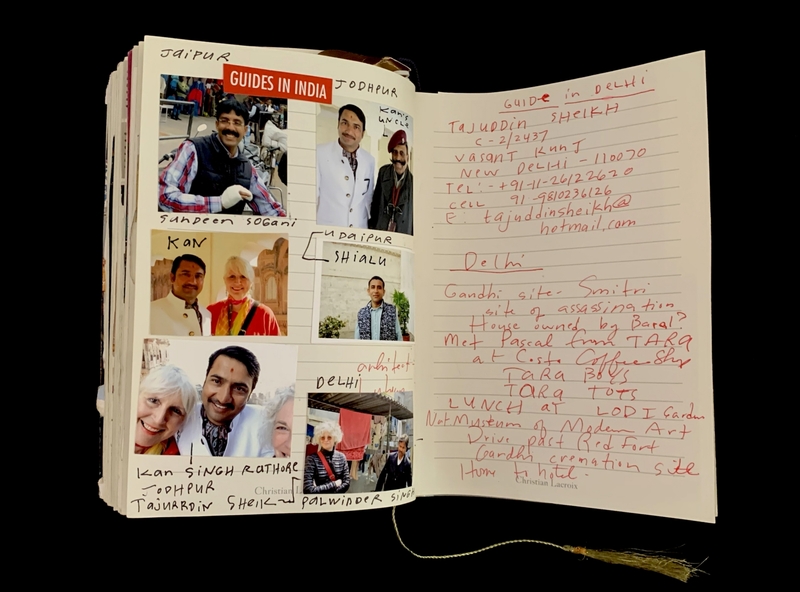 JAIPUR
GUIDES IN INDIA
JODHPUR
Kan's
UNCLE
Sundeen SOGANI
KAN
UDAIPUR
SHIALU
DELHI
Kan SINGH RATHORE
JODHPUR
TAJUARDIN SHEIK
PALWINDER SINGH
Christian L
GUIDE in DELHI
TAJUDDIN SHEIKH
C-2/2437
VASANT KUNJ
NEW DELHI - 110070
TEL: - +91-11-26122620
CELL 91-9810236126
E: tajuddinsheikh@
hotmail.com
Delhi
Gandhi site - Smitri
site of assassination
House owned by
Met Pascal from TARA
at Costa Coffee Shop
TARA BOYS
TARA TOTS
LUNCH at LODI Garden
Not Museum of Modern Art
Drive past Red Fort
Gandhi cremation site
Home to hotel.
Christian Lacroix